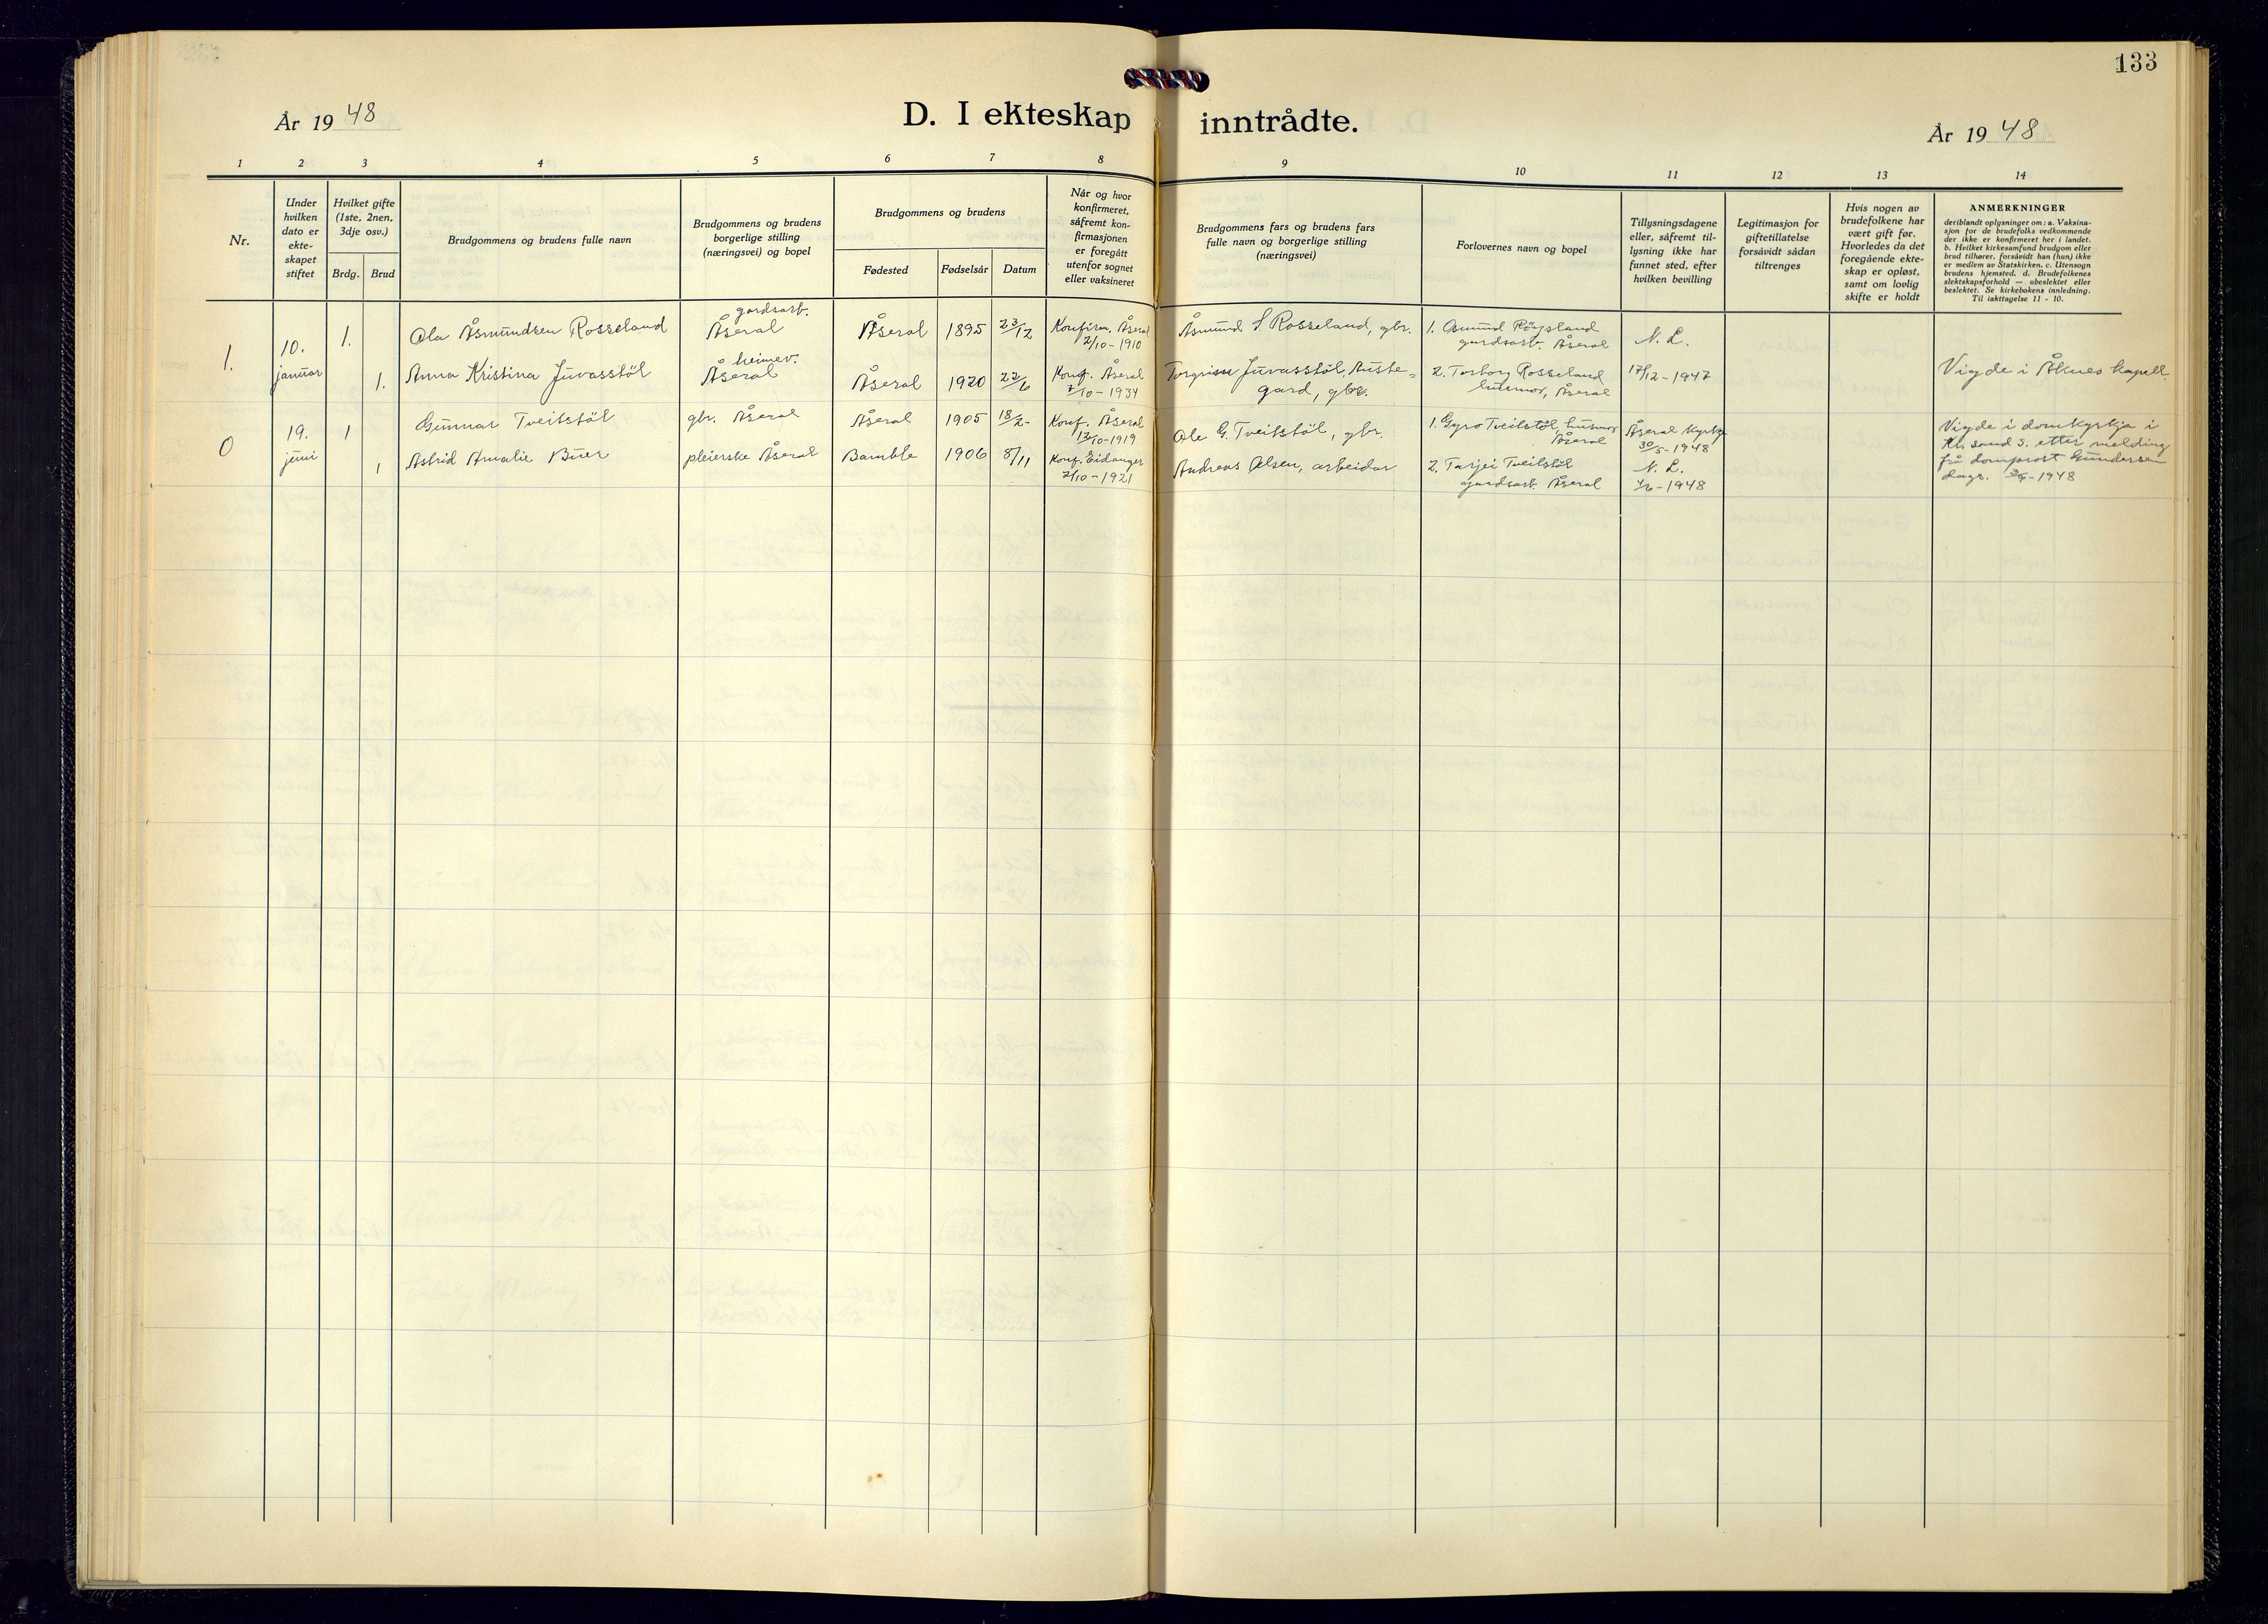 133
År 1948
D. I ekteskap inntrådte.
År 1948
1 2 3 4 5 6 7 8 9 10 11 12 13 14
Nr.
Under
hvilken
dato er
ekte-
skapet
stiftet
Hvilket gifte
(1ste, 2nen,
3dje osv.)
Brdg. Brud
Brudgommens og brudens fulle navn
Brudgommens og brudens
borgerlige stilling
(næringsvei) og bopel
Brudgommens og brudens
Fødested Fødselsår Datum
Når og hvor
konfirmeret,
såfremt kon-
firmasjonen
er foregått
utenfor sognet
eller vaksineret
Brudgommens fars og brudens fars
fulle navn og borgerlige stilling
(næringsvei)
Forlovernes navn og bopel
Tillysningsdagene
eller, såfremt til-
lysning ikke har
funnet sted, efter
hvilken bevilling
Legitimasjon for
giftetillatelse
forsåvidt sådan
tiltrenges
Hvis nogen av
brudefolkene har
vært gift før.
Hvorledes da det
foregående ekte-
skap er opløst,
samt om lovlig
skifte er holdt
ANMERKNINGER
deriblandt oplysninger om: a. Vaksina-
sjon for de brudefolks vedkommende
der ikke er konfirmeret her i landet.
b. Hvilket kirkesamfund brudgom eller
brud tilhører, forsåvidt han (hun) ikke
er medlem av Statskirken. c. Utensogn
brudens hjemsted. d. Brudefolkenes
slektskapsforhold — ubeslektet eller
beslektet. Se kirkebokens innledning.
Til iakttagelse 11 - 10.
1.
10.
januar
1.
Ola Åsmundsen Rosseland
gardsarb.
Åseral
Åseral 1895 23/12
Konfirm. Åseral
2/10 - 1910
Åsmund S. Rosseland, gbr.
1. Osmund Röysland
gardsarb. Åseral
N. L.
1.
Anna Kristina Juvasstöl
heimev.
Åseral
Åseral 1920 22/6
Konf. Åseral
7/10 - 1934
Juvasstöl, Auste-
gard, gbr.
2. Torborg Rosseland
Åseral
17/12 - 1947
Vigde i Åknes kapell.
0
19.
juni
1
Gunnar Tveitstöl
gbr. Åseral
Åseral 1905 18/2
Konf. Åseral
12/10 - 1919
Ole G. Tveitstöl, gbr.
1. Gyro Tveitstöl, husmor
Åseral
Åseral kyrkje
30/5 - 1948
1
Astrid Amalie Buer
pleierske Åseral
Bamble 1906 8/11
Konf. Eidanger
2/10 - 1921
Andreas Olsen, arbeidar
2. Tarjei Tveitstöl
gardsarb. Åseral
N. L.
4/6 - 1948
Vigde i domkyrkja i
Kr. sand S. etter melding
frå domprost Gundersen
dags. - 1948